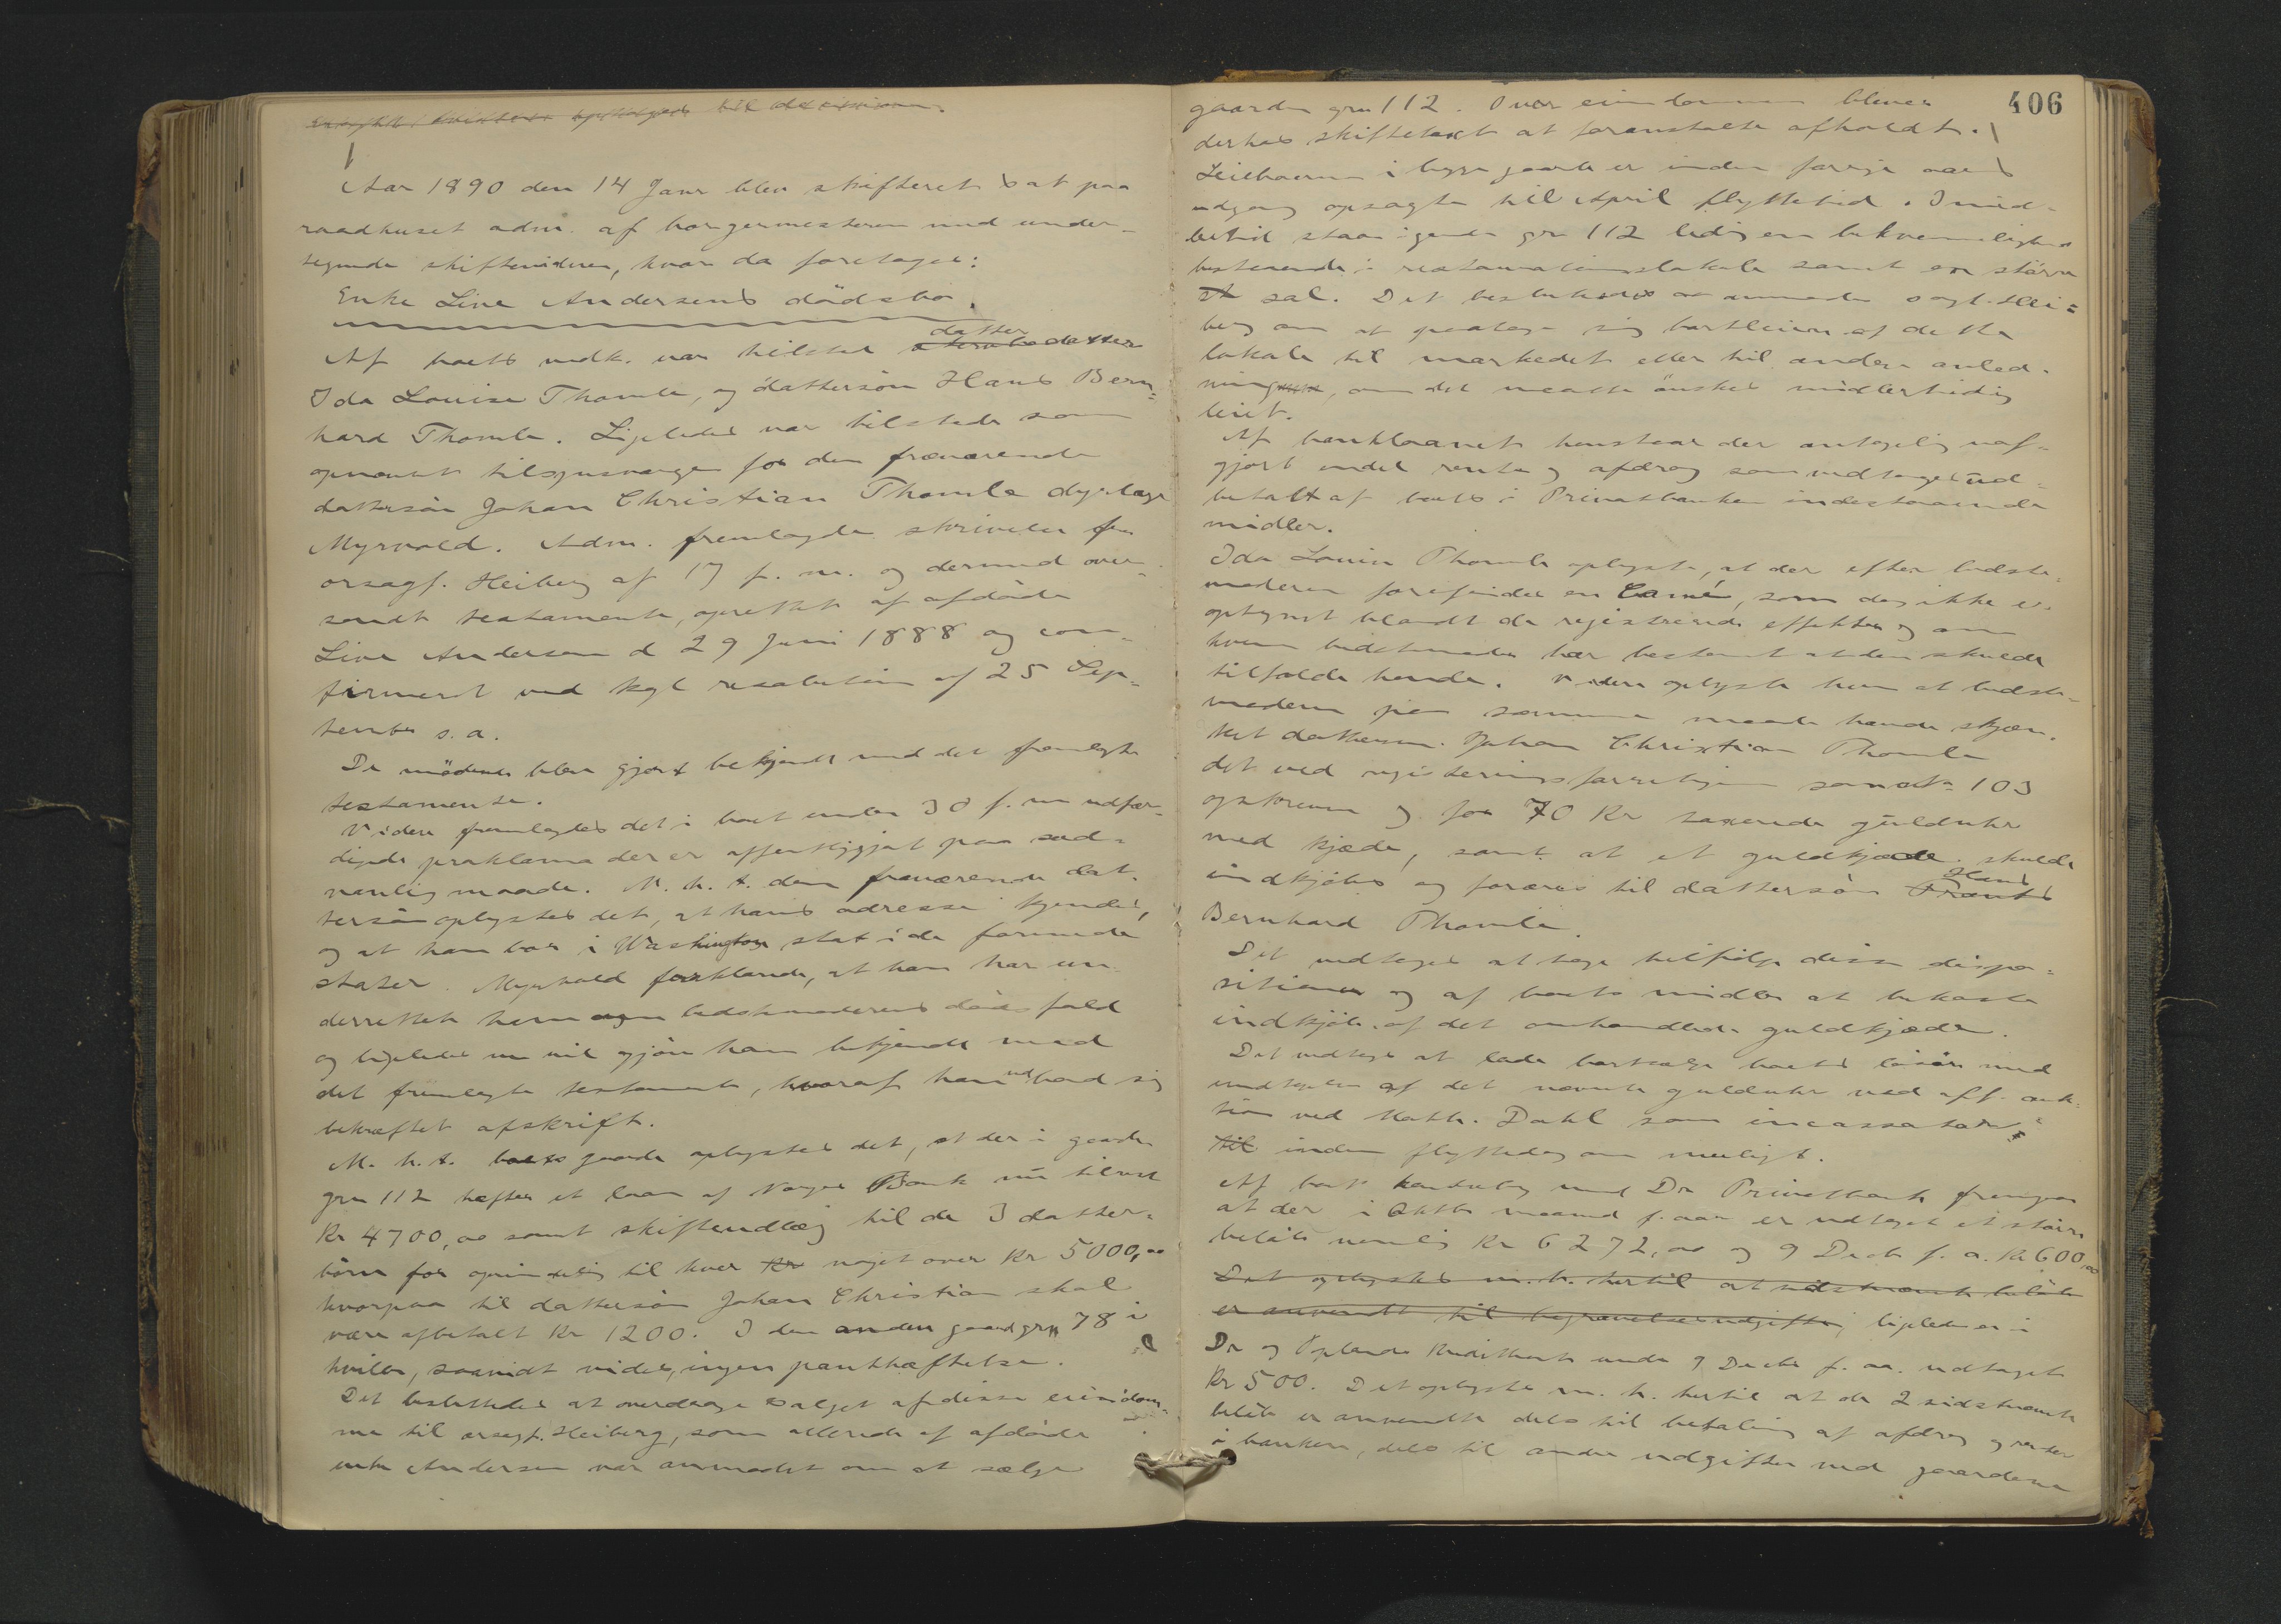 optages til decision.
Aar 1890 den 14 Janr blev skifteret sat paa
raadhuset adm. af borgermesteren med under-
tegnede skifteskriver, hvor da foretoges:
Enke Live Andersens dödsbo.
datter
Af boets vedk. var tilstede datterdatter
Ida Louise Thomle, og dattersön Hans Bern-
hard Thomle. Ligeledes var tilstede som
opnævnt tilsynsværge for den fraværende
dattersön Johan Christian Thomle dyrlæge
Myrvold. Adm. fremlagde skrivelse fra
orsagf. Heiberg af 17 f. m. og dermed over-
sendt testamente, oprettet af afdöde
Live Andersen d 29 Juni 1888 og con-
firmeret ved kgl resolution af 25 Sep-
tember s. a.
De mödende blev gjort bekjendt med det fremlagte
testamente.
Videre fremlagdes det i boet under 30 f. m udfær-
digede proklama der er offentliggjort paa sæd-
vanlig maade. M. h. t. den fraværende dat-
tersön oplystes det, at hans adresse kjendes,
og at han bor i Washington stat i de forenede
stater. Myrvold forklarede, at han har un-
derrettet ham om bedstemoderens dödsfald
og ligeledes nu vil gjöre ham bekjendt med
det fremlagte testamente, hvoraf han udbad sig
bekræftet afskrift.
M. h. t. boets gaarde oplystes det, at der i gaarden
grn 112 hefter et laan af Norges Bank nu tilrest
Kr 4700,00 samt skifteudlæg til de 3 datter-
börn for oprindelig til hver Kr noget over Kr 5000,00
hvorpaa til dattersön Johan Christian skal
være afbetalt Kr 1200. I den anden gaard grn 78 i
hviler, saavidt vides, ingen pantheftelse.
Det besluttedes at overdrage salget af disse eiendom-
me til orsagf. Heiberg, som allerede af afdöde
enke Andersen var anmodet om at sælge
406
gaarden grn 112. Over eiendommen bliver
derhos skiftetaxt at foranstalte afholdt.
Leieboerne i begge gaarde er inden forrige aars
udgang opsagte til April flyttetid. Imid-
lertid staar i gaarden grn 112 ledig en bekvemmelighed
bestaaende i restaurationslokale samt en större
sal. Det besluttedes at anmode sagf. Hei-
berg om at paatage sig bortleien af dette
lokale til markedet eller til anden anled-
ning, om det maatte önskes midlertidig
leiet.
Af banklaanet henstaar der antagelig uaf-
gjort endel rente og afdrag som vedtoges ud-
betalt af boets i Privatbanken indestaaende
midler.
Ida Louise Thomle oplyste, at der efter bedste-
moderen forefindes en Camé, som dog ikke er
optegnet blandt de registrerede effekter og om
hvem bedstemoder har bestemt at den skulde
tilfalde hende. Videre oplyste hun at bedste-
moderen paa samme maade havde skjæn-
ket dattersön Johan Christian Thomle
det ved registeringsforretningen som nr 103
opskrevne og for 70 Kr taxerede gulduhr
med kjæde, samt at et guldkjæde skulde
Hans
indkjöbes og foræres til dattersön Frants
Bernhard Thomle.
Det vedtoges at tage tilfölge disse dispo-
sitioner og af boets midler at bekoste
indkjöb af det omhandlede guldkjæde.
Det vedtoges at lade bortsælge boets lösöre med
undtagelse af det nævnte gulduhr ved off. auk-
tion ved Math. Dahl som incassator
til inden flyttedag om muligt.
Af bank kontrabog med Dr Privatbank fremgaar
at der i Oktb maaned f. aar er udtaget et större
belöb nemlig Kr 6272,00 og 9 Decb f. a. Kr 600,00
Det oplystes m. h. hertil at sidstnævnte belöb
er anvendt til begravelsesudgifter, ligeledes er i
Dr og Oplands Kreditbank under 9 Decbr f. aa. udtaget
Kr 500. Det oplystes m. h. hertil at de 2 sidstnævnte
belöb er anvendte dels til betaling af afdrag og renter
i banken, dels til andre udgifter ved gaardene